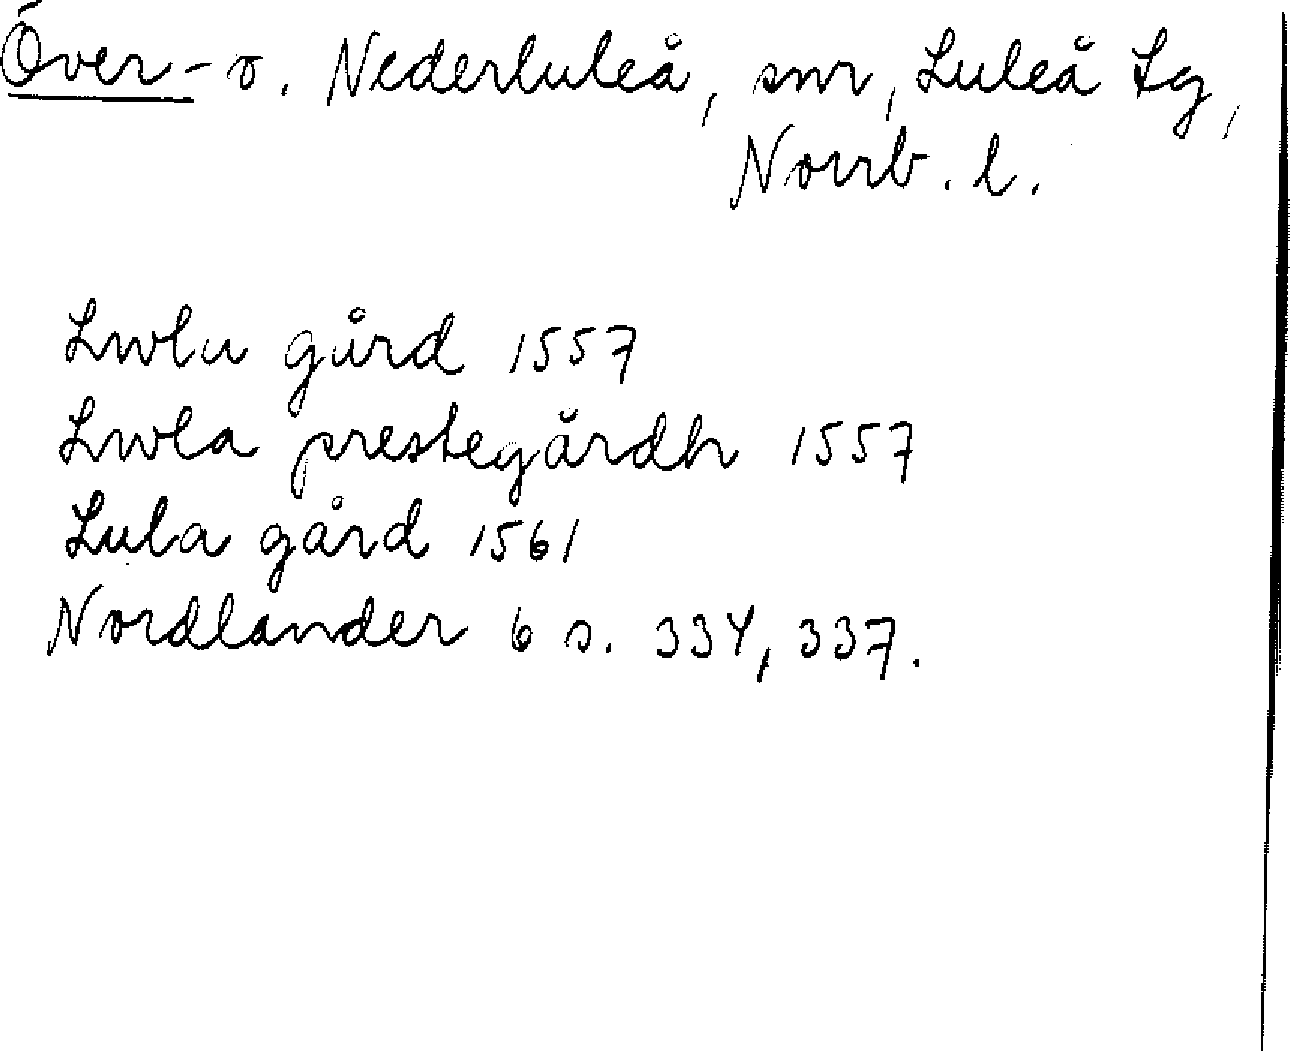 Över- o. Nederluleå, snr, Luleå tg,
Norrb. l.
Lwlu gård 1557
Lwla prestegårdh 1557
Lula gård 1561
Nordlander 6 s. 334, 337.